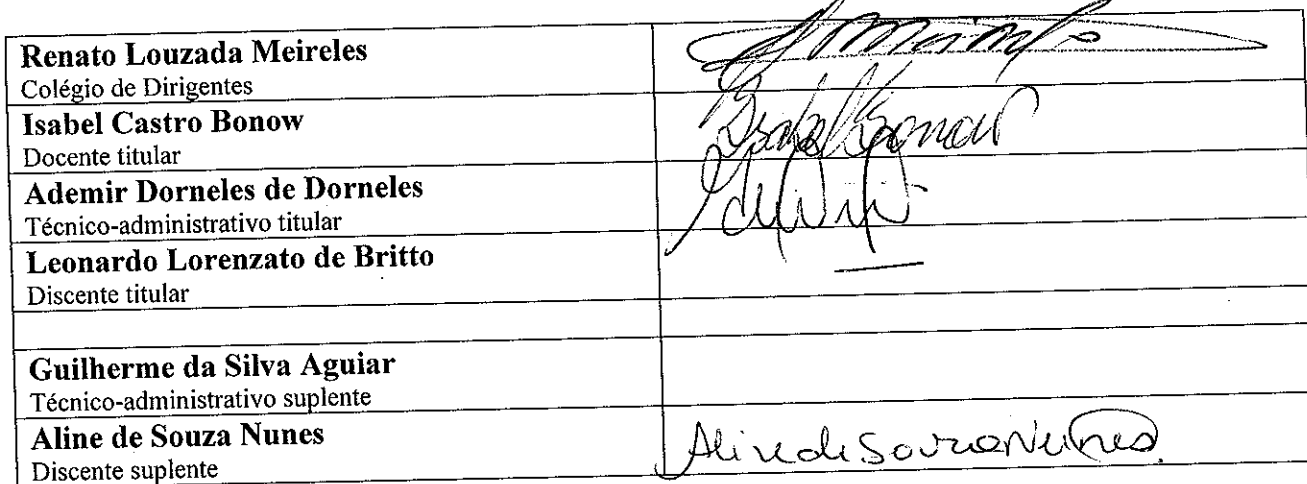 Renato Louzada Meireles
Colégio de Dirigentes
Isabel Castro Bonow
Docente titular
Isabel Bonow
Ademir Dorneles de Dorneles
Técnico-administrativo titular
Leonardo Lorenzato de Britto
Discente titular
Guilherme da Silva Aguiar
Técnico-administrativo suplente
Aline de Souza Nunes
Discente suplente
Aline de Souza Nunes